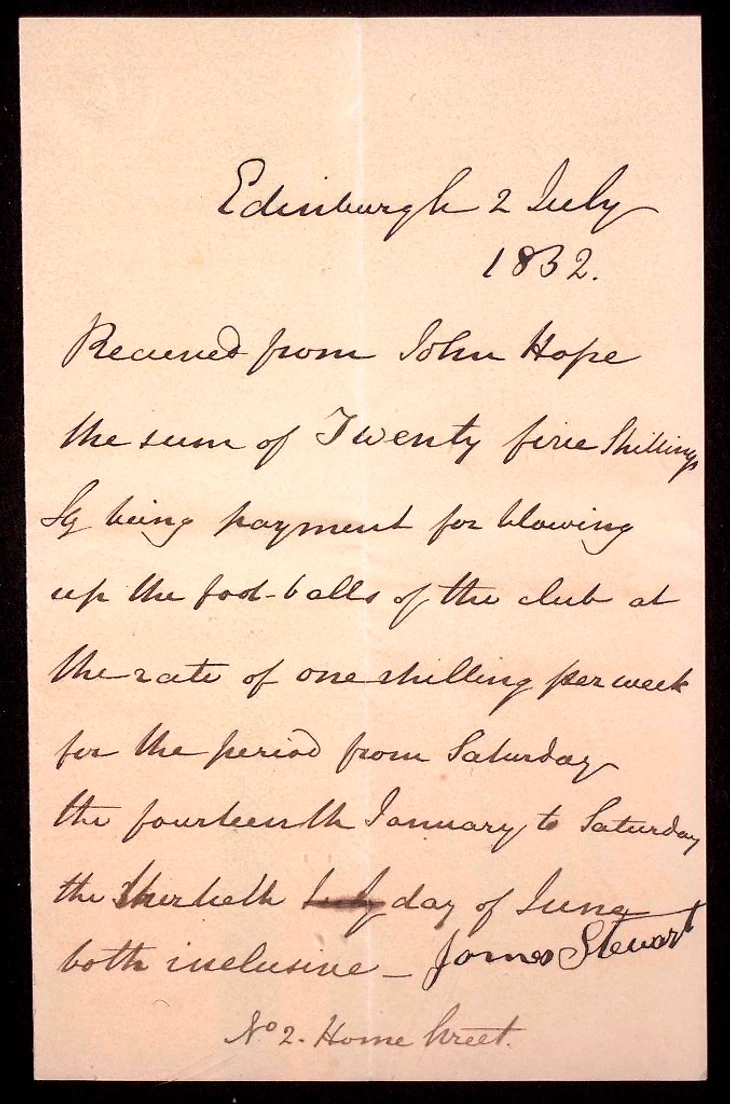 Edinburgh 2 July
1832.
Received from John Hope
the sum of Twenty five Shillings
Stg being payment for blowing
up the foot-balls of the club at
the rate of one shilling per week
for the period from Saturday
the fourteenth January to Saturday
the thirtieth day of June
both inclusive – James Stewart
No 2. Home Street.